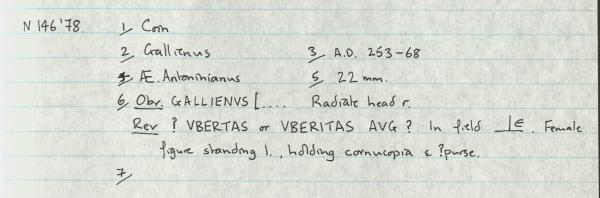 N 146'78. 1, Coin
2, Gallienus 3, A.D. 253-68
4, Æ. Antoninianus 5, 22 mm.
6, Obv. GALLIENVS [.... Radiate head r.
Rev ? VBERTAS or VBERITAS AVG ? In field ⊥ε. Female
figure standing l., holding cornucopia & ?purse.
7,